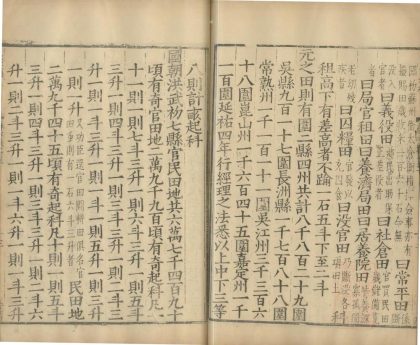 曰常平田
曰義役田曰社倉田
曰局官租田曰養濟局田曰居養院田
曰囚糧田曰沒官田
租高下有差高者不踰一石五斗下至二斗
元之田則有圍二縣四州共計八千八百二十九圍
吳縣九百一十七圍長洲縣一千七百八十八圍
常熟州一千一百一十一圍吳江州三千三百六
十八圍崑山州一千六百四十五圍嘉定州一千
一百圍延祐四年行經理之法悉以上中下三等
八則計畝起科
國朝洪武初七縣官民田地共六萬七千四百九十
頃有奇官田地二萬九千九百頃有奇起科凡
十一則一則七斗三升一則六斗三升一則五斗三
升一則四斗三升一則三斗三升一則二斗
三升一則一斗三升一則一斗一則五升
一則三升又功臣還官田開耕田俱名官民田地
二萬九千四十五頃有奇起科凡十則一則五斗
三升一則四斗三升一則三斗三升一則二斗六
升一則二斗三升一則一斗六升一則一斗三